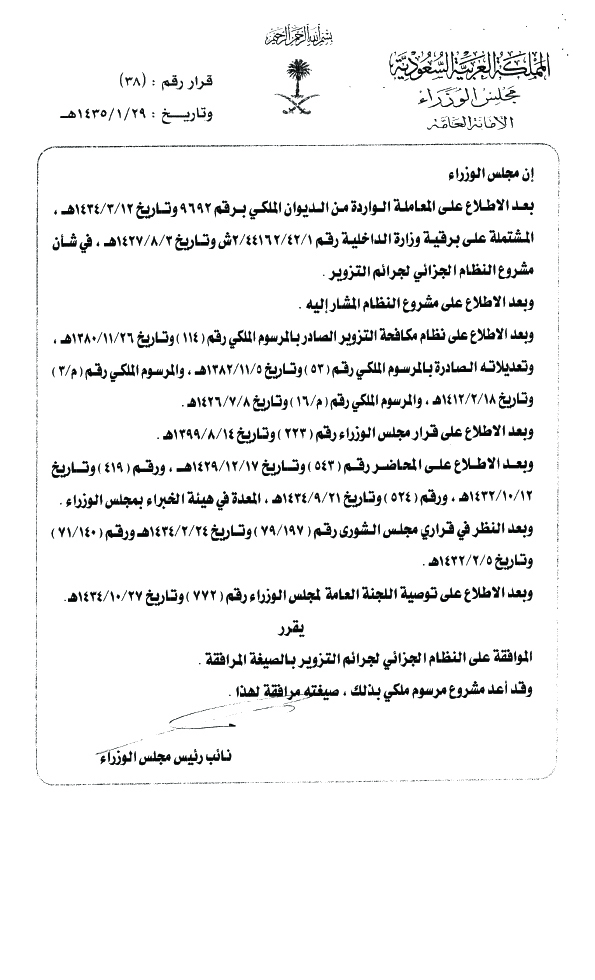 بسم الله الرحمن الرحيم
المملكة العربية السعودية
مجلس الوزراء
الأمانة العامة
قرار رقم : (٣٨)
وتاريخ : ١٤٣٥/١/٢٩هـ
إن مجلس الوزراء
بعد الاطلاع على المعاملة الواردة من الديوان الملكي برقم ٩٦٩٢ وتاريخ ١٤٣٤/٣/١٢هـ ،
المشتملة على برقية وزارة الداخلية رقم ٢/٤٤١٦٢/٤٢/١ش وتاريخ ١٤٢٧/٨/٢هـ ، في شأن
مشروع النظام الجزائي لجرائم التزوير .
وبعد الاطلاع على مشروع النظام المشار إليه .
وبعد الاطلاع على نظام مكافحة التزوير الصادر بالمرسوم الملكي رقم (١١٤) وتاريخ ١٣٨٠/١١/٢٦هـ ،
وتعديلاته الصادرة بالمرسوم الملكي رقم (٥٣) وتاريخ ١٣٨٢/١١/٥هـ ، والمرسوم الملكي رقم (م/٣)
وتاريخ ١٤١٢/٢/١٨هـ ، والمرسوم الملكي رقم (م/١٦) وتاريخ ١٤٢٦/٧/٨هـ .
وبعد الاطلاع على قرار مجلس الوزراء رقم (٢٢٣) وتاريخ ١٣٩٩/٨/١٤هـ .
وبعد الاطلاع على المحاضر رقم (٥٤٣) وتاريخ ١٤٢٩/١٢/١٧هـ ، ورقم (٤١٩) وتاريخ
١٤٣٢/١٠/١٢هـ ، ورقم (٥٢٤) وتاريخ ١٤٣٤/٩/٢١هـ ، المعدة في هيئة الخبراء بمجلس الوزراء .
وبعد النظر في قراري مجلس الشورى رقم (٧٩/١٩٧) وتاريخ ١٤٣٤/٢/٢٤هـ ورقم (٧١/١٤٠)
وتاريخ ١٤٣٢/٢/٥هـ .
وبعد الاطلاع على توصية اللجنة العامة لمجلس الوزراء رقم (٧٧٢) وتاريخ ١٤٣٤/١٠/٢٧هـ.
يقرر
الموافقة على النظام الجزائي لجرائم التزوير بالصيغة المرافقة .
وقد أعد مشروع مرسوم ملكي بذلك ، صيغته مرافقة لهذا .
نائب رئيس مجلس الوزراء